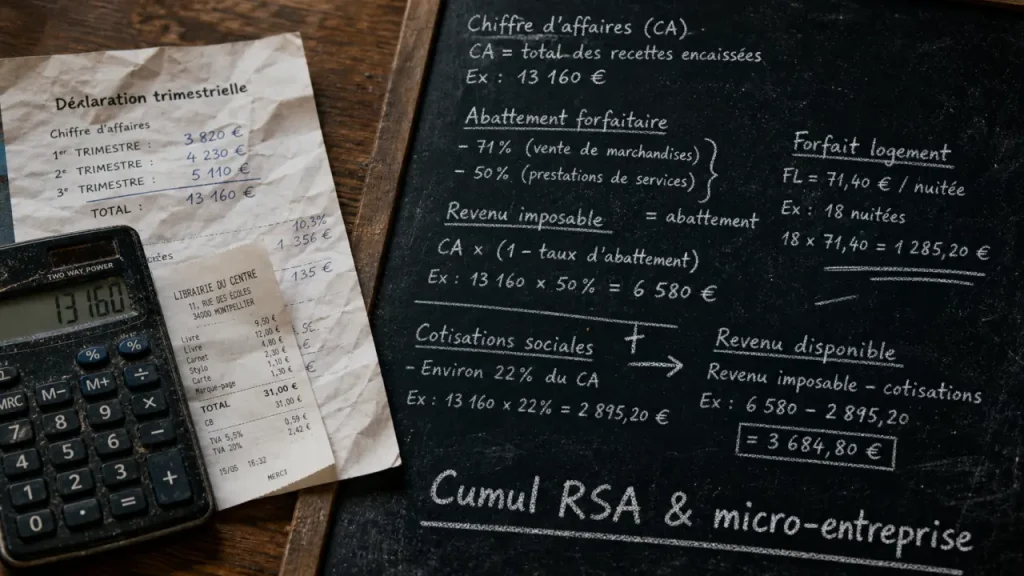 Déclaration trimestrielle
Chiffre d'affaires
1er TRIMESTRE : 3 820 €
2e TRIMESTRE : 4 230 €
3e TRIMESTRE : 5 110 €
TOTAL : 13 160 €
10,3%
1 356 €
135 €
TWO WAY POWER
13160
% %
M- M+ ÷
MRC 8 9 ×
7 5 6 −
4 2 3 +
1 . =
0
LIBRAIRIE DU CENTRE
11, RUE DES ÉCOLES
34000 MONTPELLIER
9,50 €
Livre 12,00 €
Livre 4,80 €
Carnet 2,30 €
Stylo 1,10 €
Carte 1,30 €
Marque-page
TOTAL 31,00 €
CB 31,00 €
TVA 5,5% 0,59 €
TVA 20% 2,42 €
15/05 16:32
MERCI
Chiffre d'affaires (CA)
CA = total des recettes encaissées
Ex : 13 160 €
Abattement forfaitaire
- 71% (vente de marchandises)
- 50% (prestations de services)
Revenu imposable = abattement
CA × (1 - taux d'abattement)
Ex : 13 160 × 50% = 6 580 €
Forfait logement
FL = 71,40 € / nuitée
Ex : 18 nuitées
18 × 71,40 = 1 285,20 €
Cotisations sociales +
- Environ 22% du CA
Ex : 13 160 × 22% = 2 895,20 €
Revenu disponible
Revenu imposable - cotisations
Ex : 6 580 - 2 895,20
= 3 684,80 €
Cumul RSA & micro-entreprise